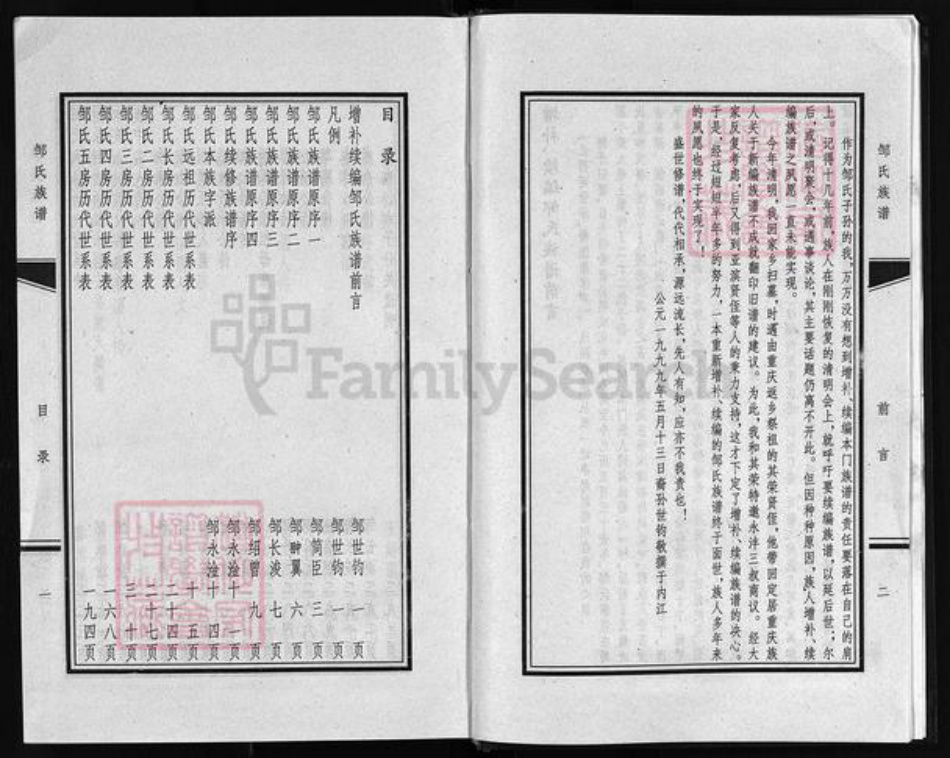 邹氏族谱
前言
二
作为邹氏子孙的我，万万没有想到增补、续编本门族谱的责任要落在自己的肩
上。记得十几年前，族人在刚刚恢复的清明会上，就呼吁要续编族谱，以延后世；尔
后，或清明聚会，或遇事谈论，其主要话题仍离不开此。但因种种原因，族人增补、续
编族谱之夙愿一直未能实现。
今年清明，我回家乡扫墓，时遇由重庆返乡祭祖的其荣贤侄，他带回定居重庆族
人关于新编族谱不成就翻印旧谱的建议。为此，我和其荣特邀永沣三叔商议。经大
家反复考虑，后又得到亚滨贤侄等人的秉力支持，这才下定了增补、续编族谱的决心。
于是，经过短短半年多的努力，一本重新增补、续编的邹氏族谱终于面世，族人多年来
的夙愿也终于实现了！
盛世修谱，代代相承，源远流长，先人有知，应亦不我责也！
公元一九九九年五月十三日裔孙世钧敬撰于内江
目录
增补续编邹氏族谱前言 邹世钧 一页
凡例 邹世钧 一页
邹氏族谱原序一 邹简臣 三页
邹氏族谱原序二 邹翀翼 六页
邹氏族谱原序三 邹长浚 七页
邹氏族谱原序四 邹绍曾 九页
邹氏续修族谱序 邹永淦 十一页
邹氏本族字派 邹永淦 十四页
邹氏远祖历代世系表 十五页
邹氏长房历代世系表 二十四页
邹氏二房历代世系表 二十七页
邹氏三房历代世系表 三十页
邹氏四房历代世系表 一六八页
邹氏五房历代世系表 一九四页
邹氏族谱
目录
一
FamilySearch